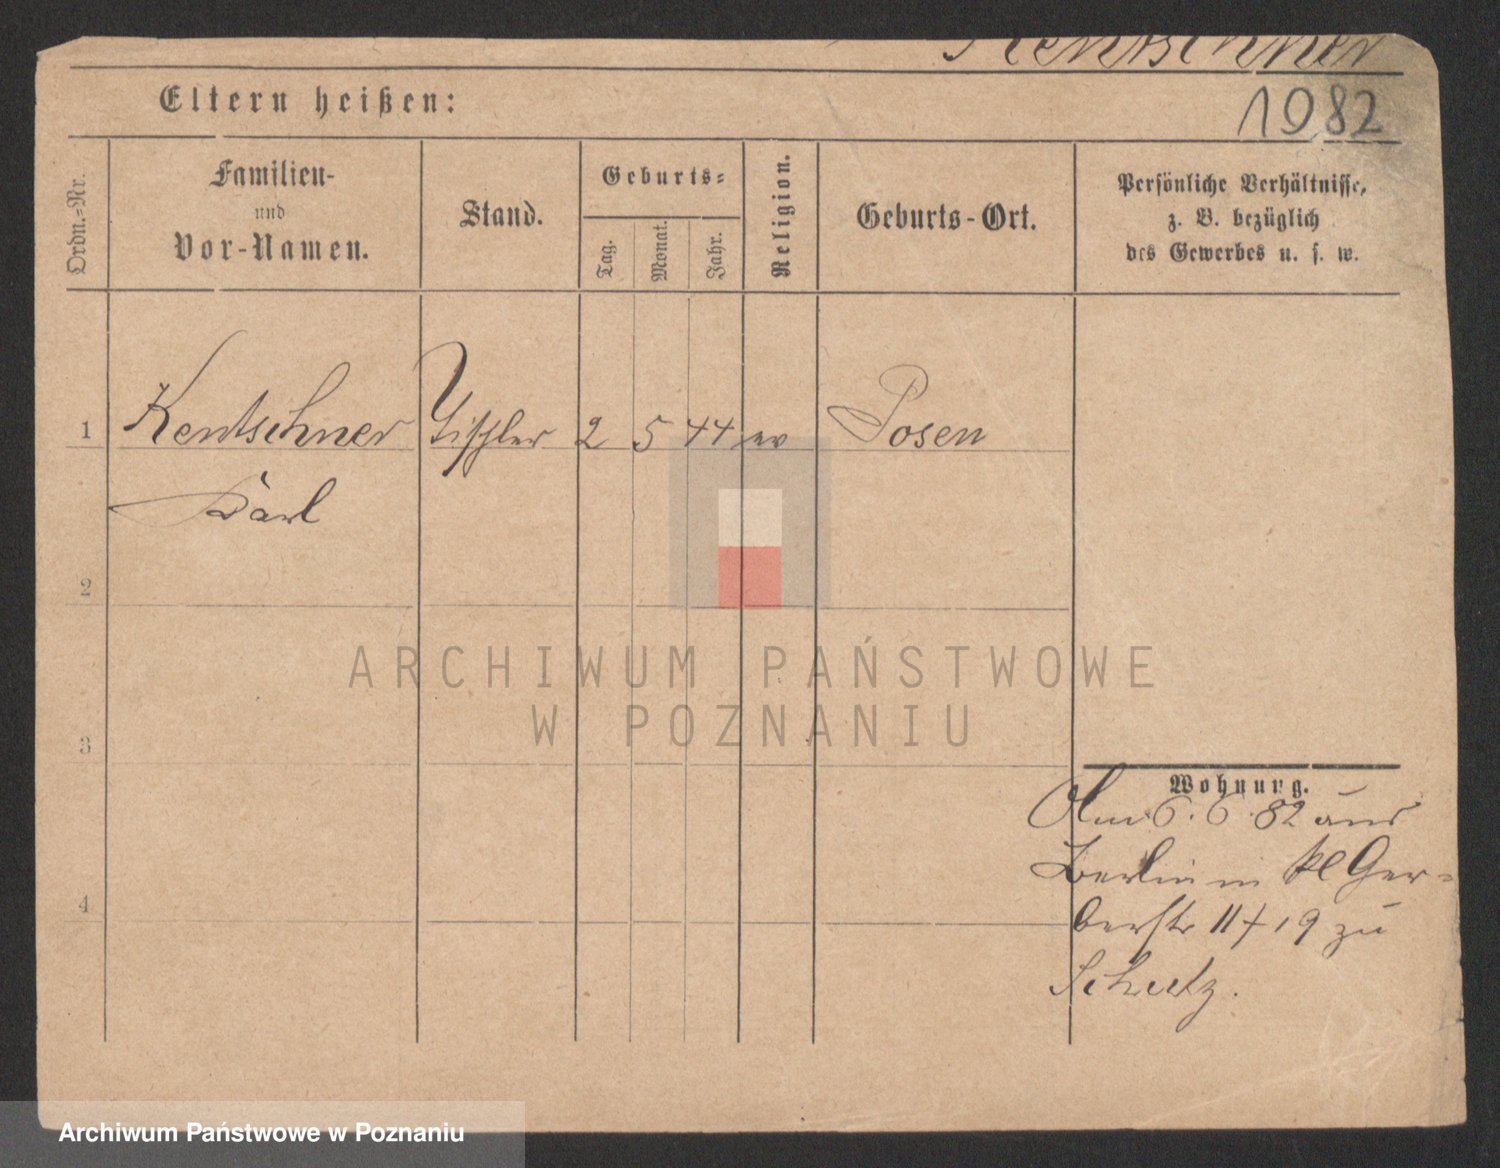 Kentschner
Eltern heißen:
1982
Ordn.=Nr.
Familien-
und
Vor-Namen.
Stand.
Geburts=
Tag.
Monat.
Jahr.
Religion.
Geburts-Ort.
Persönliche Verhältnisse,
z. B. bezüglich
des Gewerbes u. s. w.
1 Kentschner Tischler 2 5 44 ev Posen
Karl
2
3
4
Wohnung.
Am 6. 6. 82 aus
Berlin in Kl Ger=
berstr 11 19 zu
Schulz.
ARCHIWUM PAŃSTWOWE
W POZNANIU
Archiwum Państwowe w Poznaniu